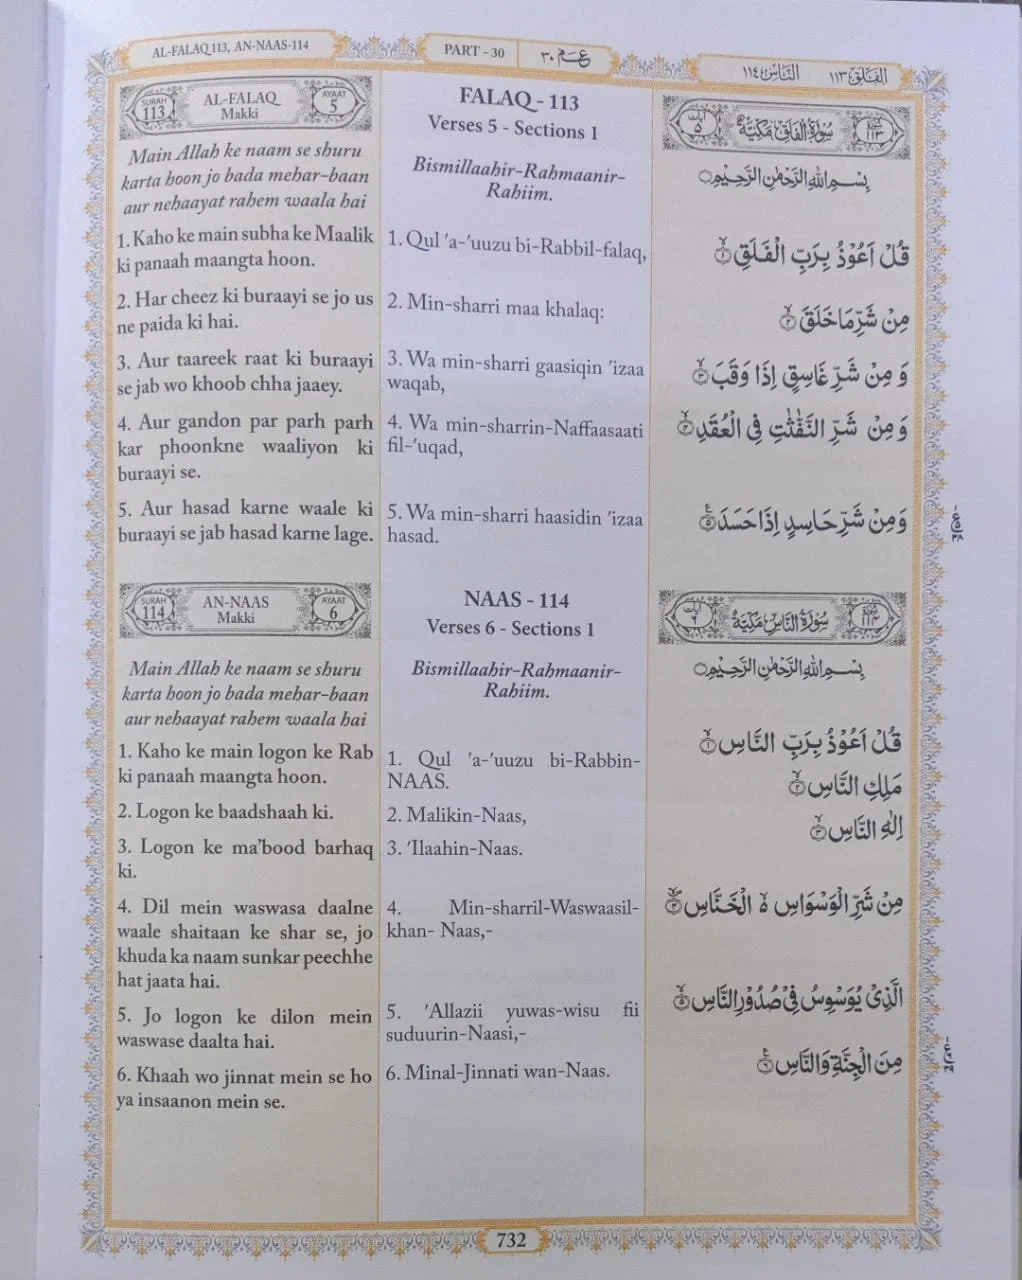 AL-FALAQ 113, AN-NAAS-114
PART - 30
عـم ٣٠
النَّاس ١١٤
الفلق ١١٣
SURAH 113
AL-FALAQ
Makki
AYAAT 5
Main Allah ke naam se shuru
karta hoon jo bada mehar-baan
aur nehaayat rahem waala hai
1. Kaho ke main subha ke Maalik
ki panaah maangta hoon.
2. Har cheez ki buraayi se jo us
ne paida ki hai.
3. Aur taareek raat ki buraayi
se jab wo khoob chha jaaey.
4. Aur gandon par parh parh
kar phoonkne waaliyon ki
buraayi se.
5. Aur hasad karne waale ki
buraayi se jab hasad karne lage.
SURAH 114
AN-NAAS
Makki
AYAAT 6
Main Allah ke naam se shuru
karta hoon jo bada mehar-baan
aur nehaayat rahem waala hai
1. Kaho ke main logon ke Rab
ki panaah maangta hoon.
2. Logon ke baadshaah ki.
3. Logon ke ma'bood barhaq
ki.
4. Dil mein waswasa daalne
waale shaitaan ke shar se, jo
khuda ka naam sunkar peechhe
hat jaata hai.
5. Jo logon ke dilon mein
waswase daalta hai.
6. Khaah wo jinnat mein se ho
ya insaanon mein se.
FALAQ - 113
Verses 5 - Sections 1
Bismillaahir-Rahmaanir-
Rahiim.
1. Qul 'a-'uuzu bi-Rabbil-falaq,
2. Min-sharri maa khalaq:
3. Wa min-sharri gaasiqin 'izaa
waqab,
4. Wa min-sharrin-Naffaasaati
fil-'uqad,
5. Wa min-sharri haasidin 'izaa
hasad.
NAAS - 114
Verses 6 - Sections 1
Bismillaahir-Rahmaanir-
Rahiim.
1. Qul 'a-'uuzu bi-Rabbin-
NAAS.
2. Malikin-Naas,
3. 'Ilaahin-Naas.
4. Min-sharril-Waswaasil-
khan- Naas,-
5. 'Allazii yuwas-wisu fii
suduurin-Naasi,-
6. Minal-Jinnati wan-Naas.
سُوْرَةُ الْفَلَقِ مَكِّيَّةٌ
١١٣
اٰيات ٥
بِسْمِ اللّٰهِ الرَّحْمٰنِ الرَّحِيْمِ
قُلْ اَعُوْذُ بِرَبِّ الْفَلَقِ ۙ١
مِنْ شَرِّ مَا خَلَقَ ۙ٢
وَ مِنْ شَرِّ غَاسِقٍ اِذَا وَقَبَ ۙ٣
وَ مِنْ شَرِّ النَّفّٰثٰتِ فِي الْعُقَدِ ۙ٤
وَ مِنْ شَرِّ حَاسِدٍ اِذَا حَسَدَ ۧ٥
سُوْرَةُ النَّاسِ مَكِّيَّةٌ
١١٤
اٰيات ٦
بِسْمِ اللّٰهِ الرَّحْمٰنِ الرَّحِيْمِ
قُلْ اَعُوْذُ بِرَبِّ النَّاسِ ۙ١
مَلِكِ النَّاسِ ۙ٢
اِلٰهِ النَّاسِ ۙ٣
مِنْ شَرِّ الْوَسْوَاسِ ۙ۬ الْخَنَّاسِ ۪ۙ٤
الَّذِيْ يُوَسْوِسُ فِيْ صُدُوْرِ النَّاسِ ۙ٥
مِنَ الْجِنَّةِ وَ النَّاسِ ۧ٦
732